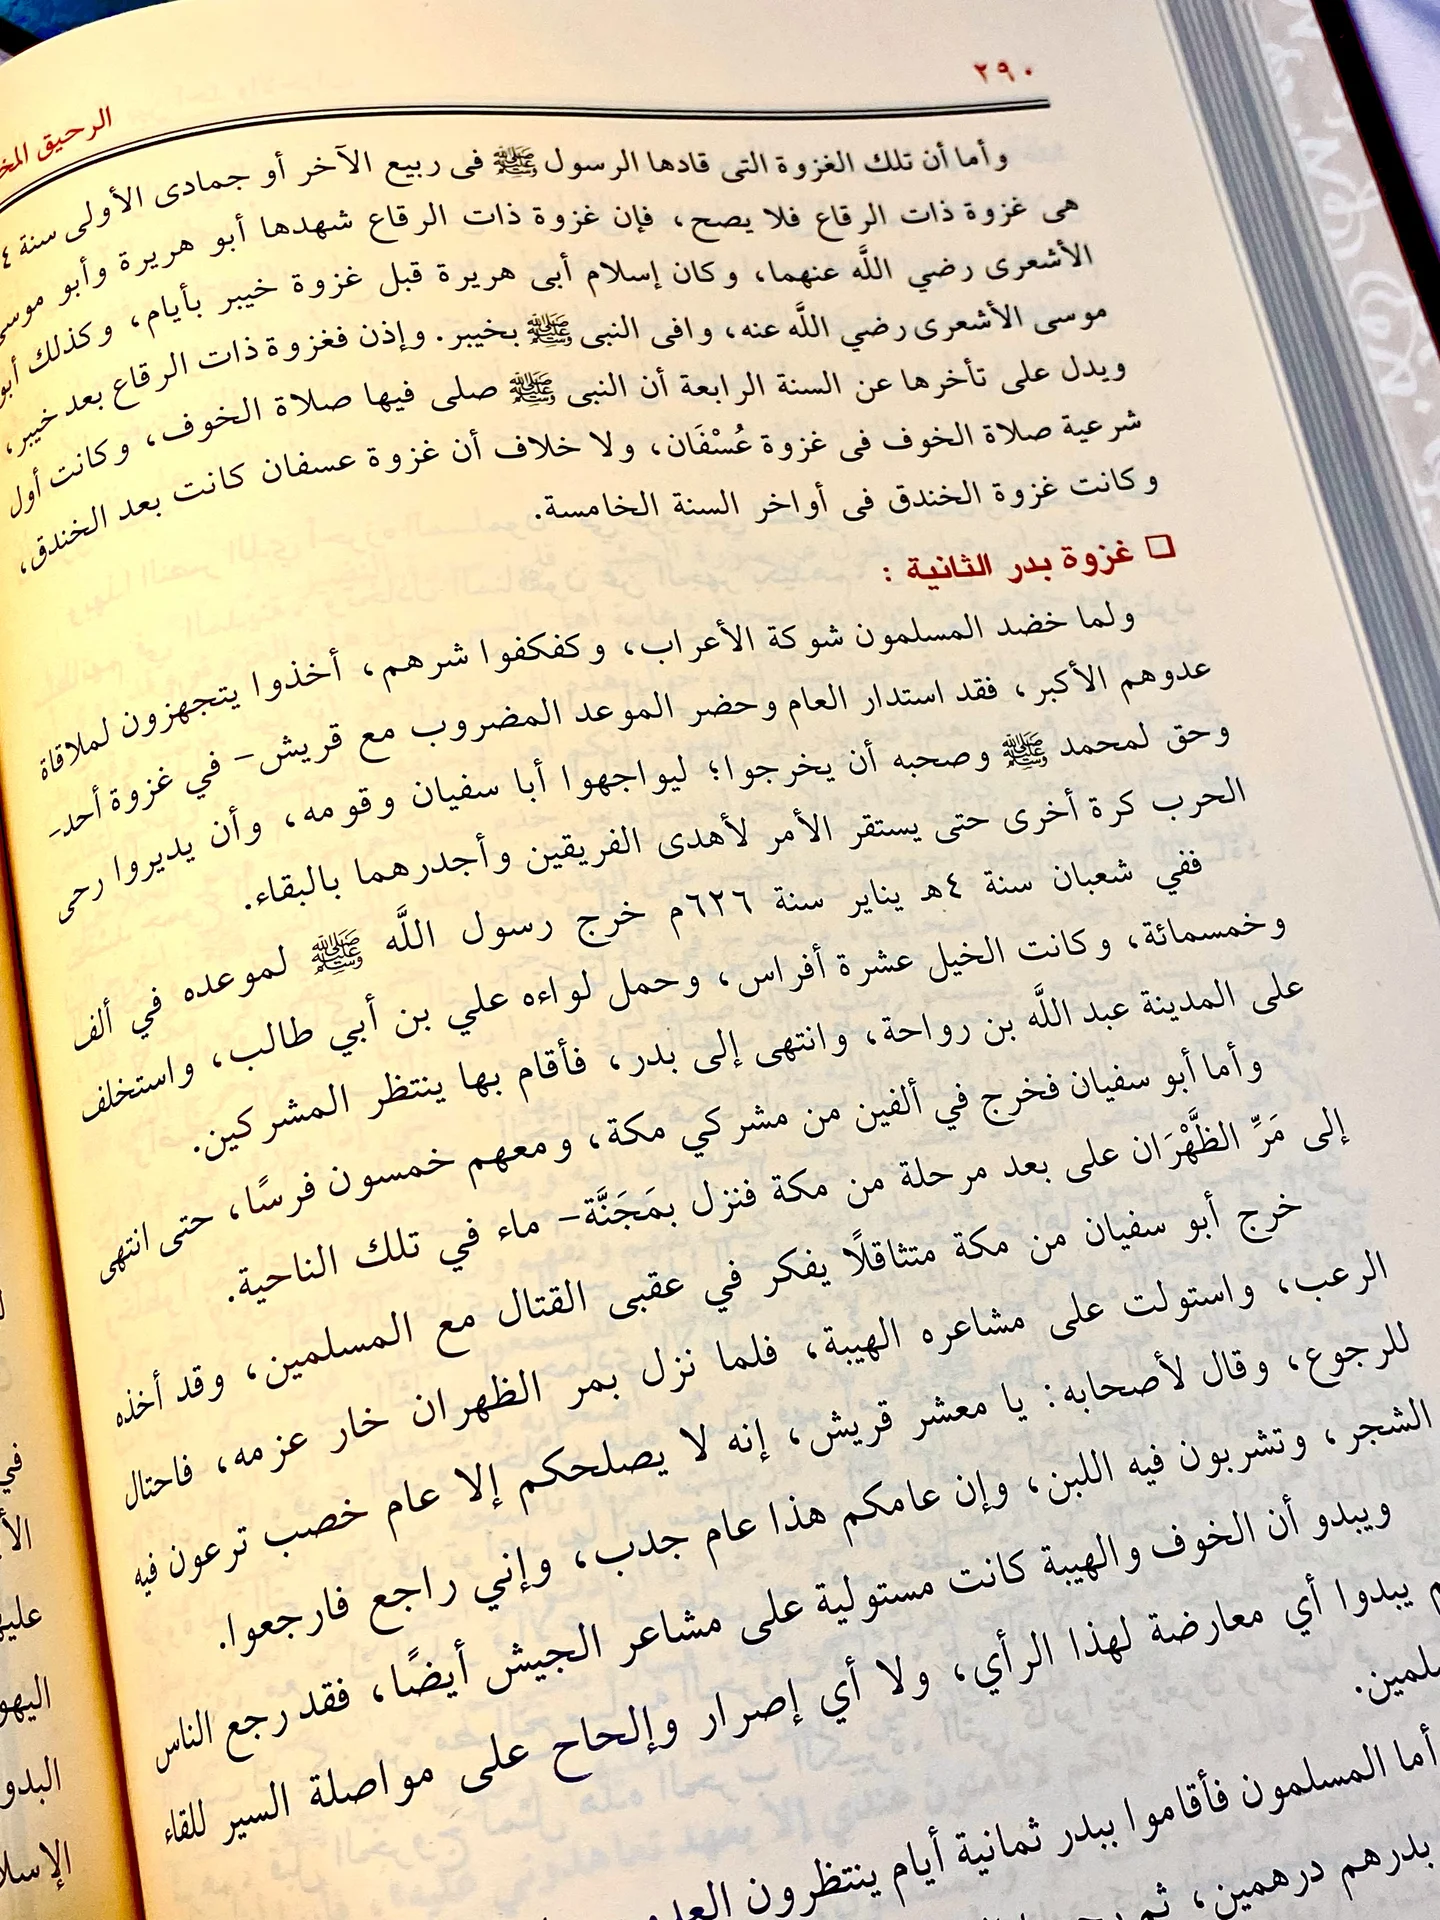 ٢٩٠
الرحيق
وأما أن تلك الغزوة التى قادها الرسول ﷺ فى ربيع الآخر أو جمادى الأولى سنة ٤
هى غزوة ذات الرقاع فلا يصح، فإن غزوة ذات الرقاع شهدها أبو هريرة وأبو موسى
الأشعرى رضي اللَّه عنهما، وكان إسلام أبى هريرة قبل غزوة خيبر بأيام، وكذلك أبو
موسى الأشعرى رضي اللَّه عنه، وافى النبى ﷺ بخيبر. وإذن فغزوة ذات الرقاع بعد خيبر،
ويدل على تأخرها عن السنة الرابعة أن النبى ﷺ صلى فيها صلاة الخوف، وكانت أول
شرعية صلاة الخوف فى غزوة عُسْفَان، ولا خلاف أن غزوة عسفان كانت بعد الخندق،
وكانت غزوة الخندق فى أواخر السنة الخامسة.
❑ غزوة بدر الثانية :
ولما خضد المسلمون شوكة الأعراب، وكفكفوا شرهم، أخذوا يتجهزون لملاقاة
عدوهم الأكبر، فقد استدار العام وحضر الموعد المضروب مع قريش- في غزوة أحد-
وحق لمحمد ﷺ وصحبه أن يخرجوا؛ ليواجهوا أبا سفيان وقومه، وأن يديروا رحى
الحرب كرة أخرى حتى يستقر الأمر لأهدى الفريقين وأجدرهما بالبقاء.
ففي شعبان سنة ٤هـ يناير سنة ٦٢٦م خرج رسول اللَّه ﷺ لموعده في ألف
وخمسمائة، وكانت الخيل عشرة أفراس، وحمل لواءه علي بن أبي طالب، واستخلف
على المدينة عبد اللَّه بن رواحة، وانتهى إلى بدر، فأقام بها ينتظر المشركين.
وأما أبو سفيان فخرج في ألفين من مشركي مكة، ومعهم خمسون فرسًا، حتى انتهى
إلى مَرِّ الظَّهْرَان على بعد مرحلة من مكة فنزل بمَجَنَّة- ماء في تلك الناحية.
خرج أبو سفيان من مكة متثاقلًا يفكر في عقبى القتال مع المسلمين، وقد أخذه
الرعب، واستولت على مشاعره الهيبة، فلما نزل بمر الظهران خار عزمه، فاحتال
للرجوع، وقال لأصحابه: يا معشر قريش، إنه لا يصلحكم إلا عام خصب ترعون فيه
الشجر، وتشربون فيه اللبن، وإن عامكم هذا عام جدب، وإني راجع فارجعوا.
ويبدو أن الخوف والهيبة كانت مستولية على مشاعر الجيش أيضًا، فقد رجع الناس
يبدوا أي معارضة لهذا الرأي، ولا أي إصرار وإلحاح على مواصلة السير للقاء
أما المسلمون فأقاموا ببدر ثمانية أيام ينتظرون
بدرهم درهمين، ثم
في
اليهو
البدو